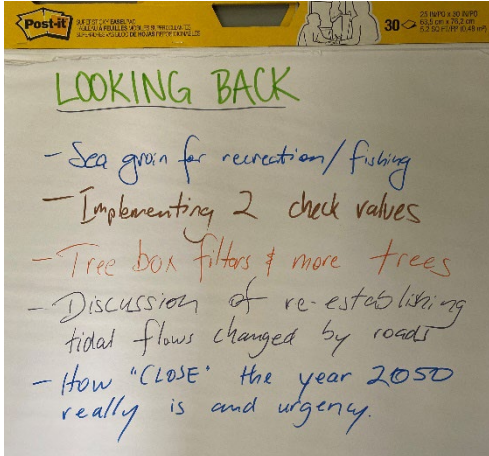 Post-it
30
LOOKING BACK
- Sea groin for recreation/ fishing
- Implementing 2 check valves
- Tree box filtors & more trees
- Discussion of re-establishing
tidal flows changed by roads
- How "CLOSE" the year 2050
really is and urgency.